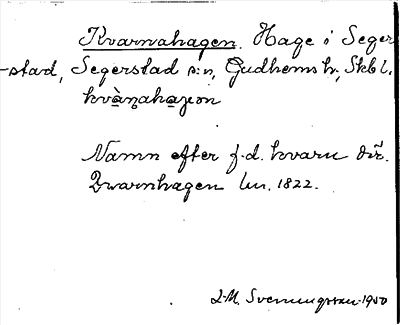 Kvarnahagen. Hage i Seger
-stad, Segerstad s:n, Gudhems hd, Skbl.
kvànahagen
Namn efter f.d. kvarn där.
Qwarnhagen lm. 1822.
L-M. Svenungsson 1950